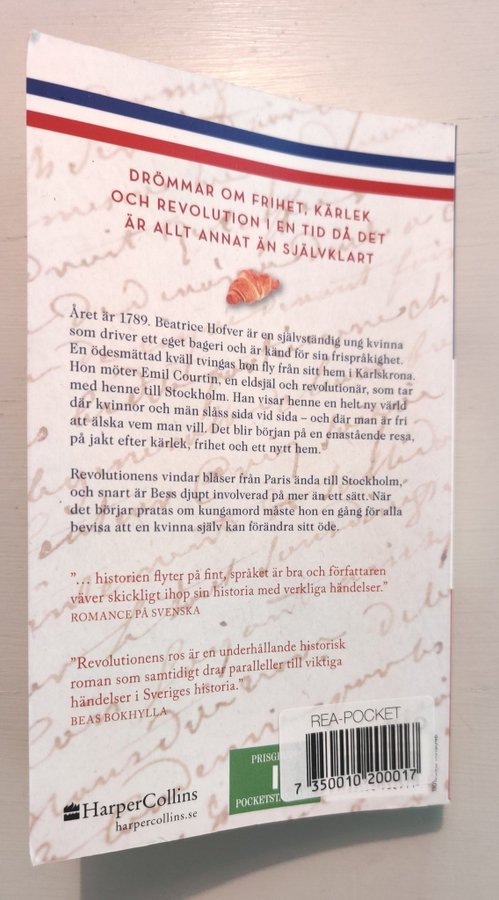 DRÖMMAR OM FRIHET, KÄRLEK
OCH REVOLUTION I EN TID DÅ DET
ÄR ALLT ANNAT ÄN SJÄLVKLART
Året är 1789. Beatrice Hofver är en självständig ung kvinna
som driver ett eget bageri och är känd för sin frispråkighet.
En ödesmättad kväll tvingas hon fly från sitt hem i Karlskrona.
Hon möter Emil Courtin, en eldsjäl och revolutionär, som tar
med henne till Stockholm. Han visar henne en helt ny värld
där kvinnor och män slåss sida vid sida – och där man är fri
att älska vem man vill. Det blir början på en enastående resa,
på jakt efter kärlek, frihet och ett nytt hem.
Revolutionens vindar blåser från Paris ända till Stockholm,
och snart är Bess djupt involverad på mer än ett sätt. När
det börjar pratas om kungamord måste hon en gång för alla
bevisa att en kvinna själv kan förändra sitt öde.
”... historien flyter på fint, språket är bra och författaren
väver skickligt ihop sin historia med verkliga händelser.”
ROMANCE PÅ SVENSKA
”Revolutionens ros är en underhållande historisk
roman som samtidigt drar paralleller till viktiga
händelser i Sveriges historia.”
BEAS BOKHYLLA
REA-POCKET
7 350010 200017
PRISG
POCKETST
HarperCollins
harpercollins.se